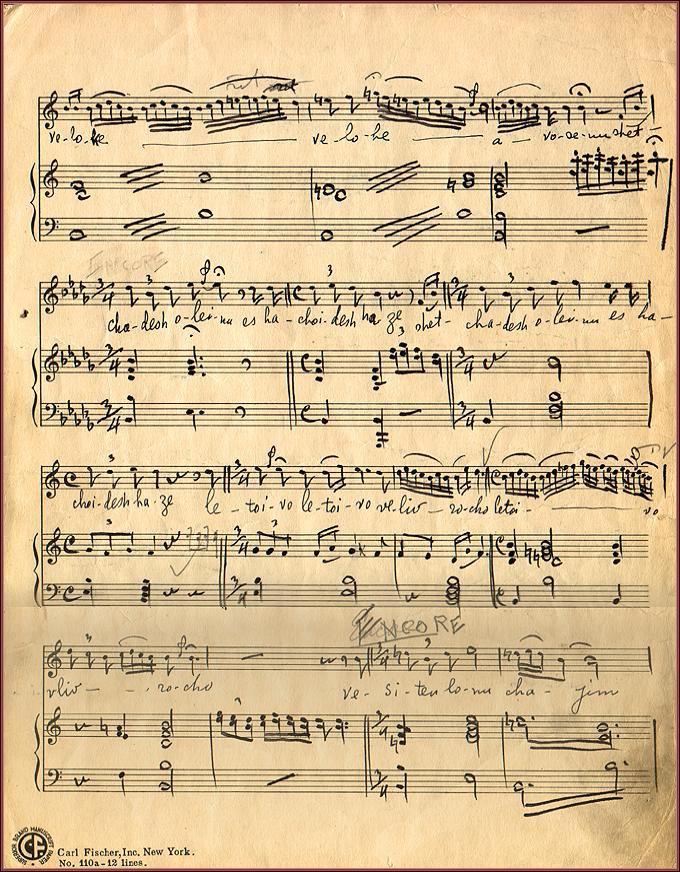 ve-lo-he ve-lo-he a - vo-se-nu shet-
ENCORE
cha-desh o-lei-nu es ha-choi-desh ha ze shet- cha-desh o-lei-nu es ha-
choi-desh ha-ze le-toi-vo le-toi-vo ve-liv-ro-cho letoi- vo
ENCORE
vliv- ro-cho ve-si-ten lo-nu cha-jim
SUPERIOR BRAND MANUSCRIPT PAPER
CF
Carl Fischer, Inc. New York.
No. 110a-12 lines.